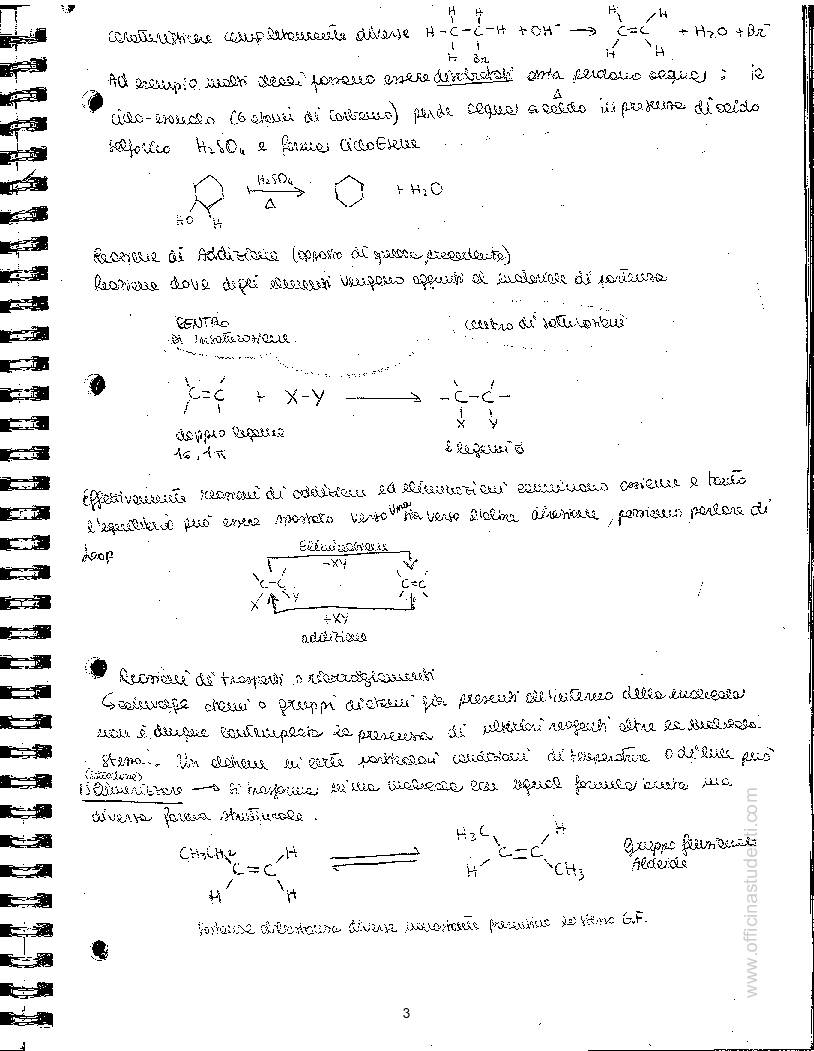 caratteristiche completamente diverse H-C-C-H + OH⁻ → C=C + H₂O + Br⁻
Ad esempio molti alcoli possono essere disidratati ossia perdono acqua; il
ciclo-esanolo (6 atomi di carbonio) perde acqua a caldo in presenza di acido
solforico H₂SO₄ e forma CicloEsene
H₂SO₄
Δ
+ H₂O
HO H
Reazione di Addizione (opposto di quella precedente)
Reazione dove degli elementi vengono aggiunti al materiale di partenza
CENTRO
di insaturazione
centro di saturazione
C=C + X-Y → -C-C-
X Y
doppio legame
1σ, 1π
2 legami σ
Effettivamente reazioni di addizione ed eliminazioni assieme e
l'equilibrio può essere spostato verso una sia verso l'altra direzione, possiamo parlare di
Loop
Eliminazione
-XY
C-C C=C
X Y
+XY
addizione
Reazioni di trasposti o riarrangiamenti
atomi o gruppi di atomi già presenti all'interno della molecola
non è dunque contemplata la presenza di ulteriori reagenti oltre la molecola
stessa. Un alchene in certe particolari condizioni di temperatura o di luce può
isomerizzare → si trasforma in una molecola con ugual formula bruta ma
diversa forma strutturale.
CH₃CH₂ H
C=C
H H
H₃C H
C=C
H CH₃
Gruppo funzionale
Aldeide
sostanze diverse nonostante presentino lo stesso G.F.
www.officinastudenti.com
3